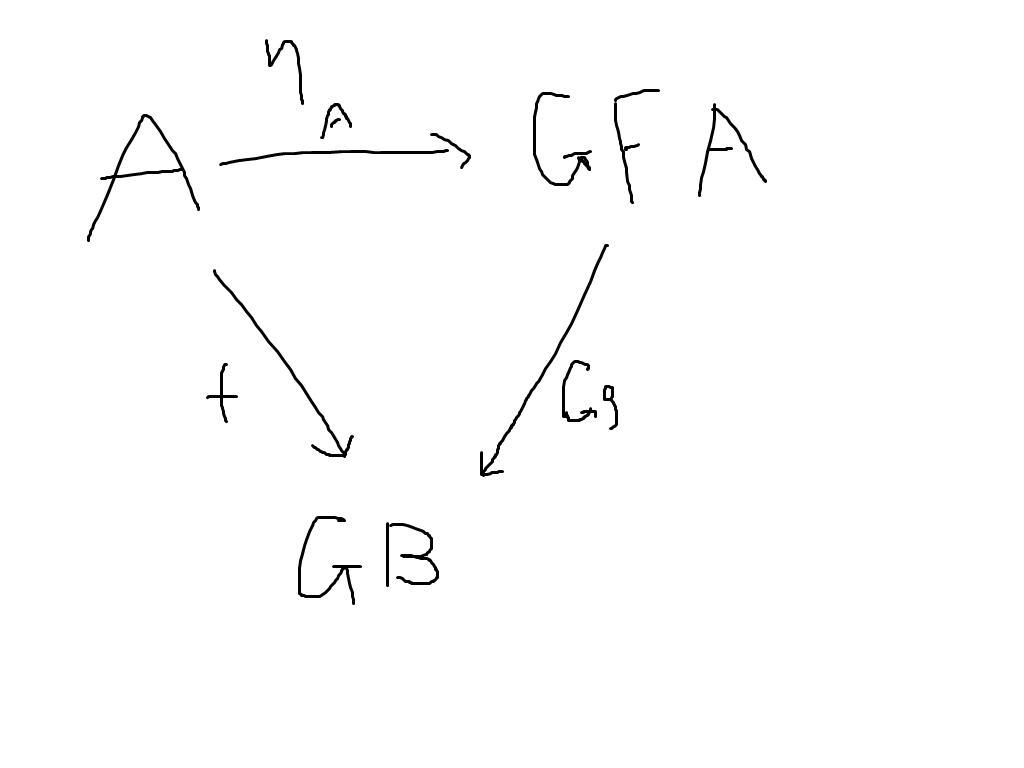 η_A
A GFA
f Gg
GB